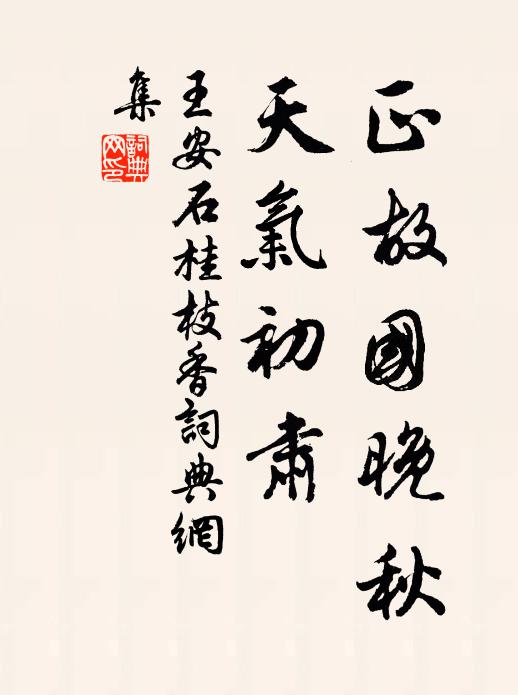 正故國晚秋
天氣初肅
王安石桂枝香詞典網
集
詞典
網印